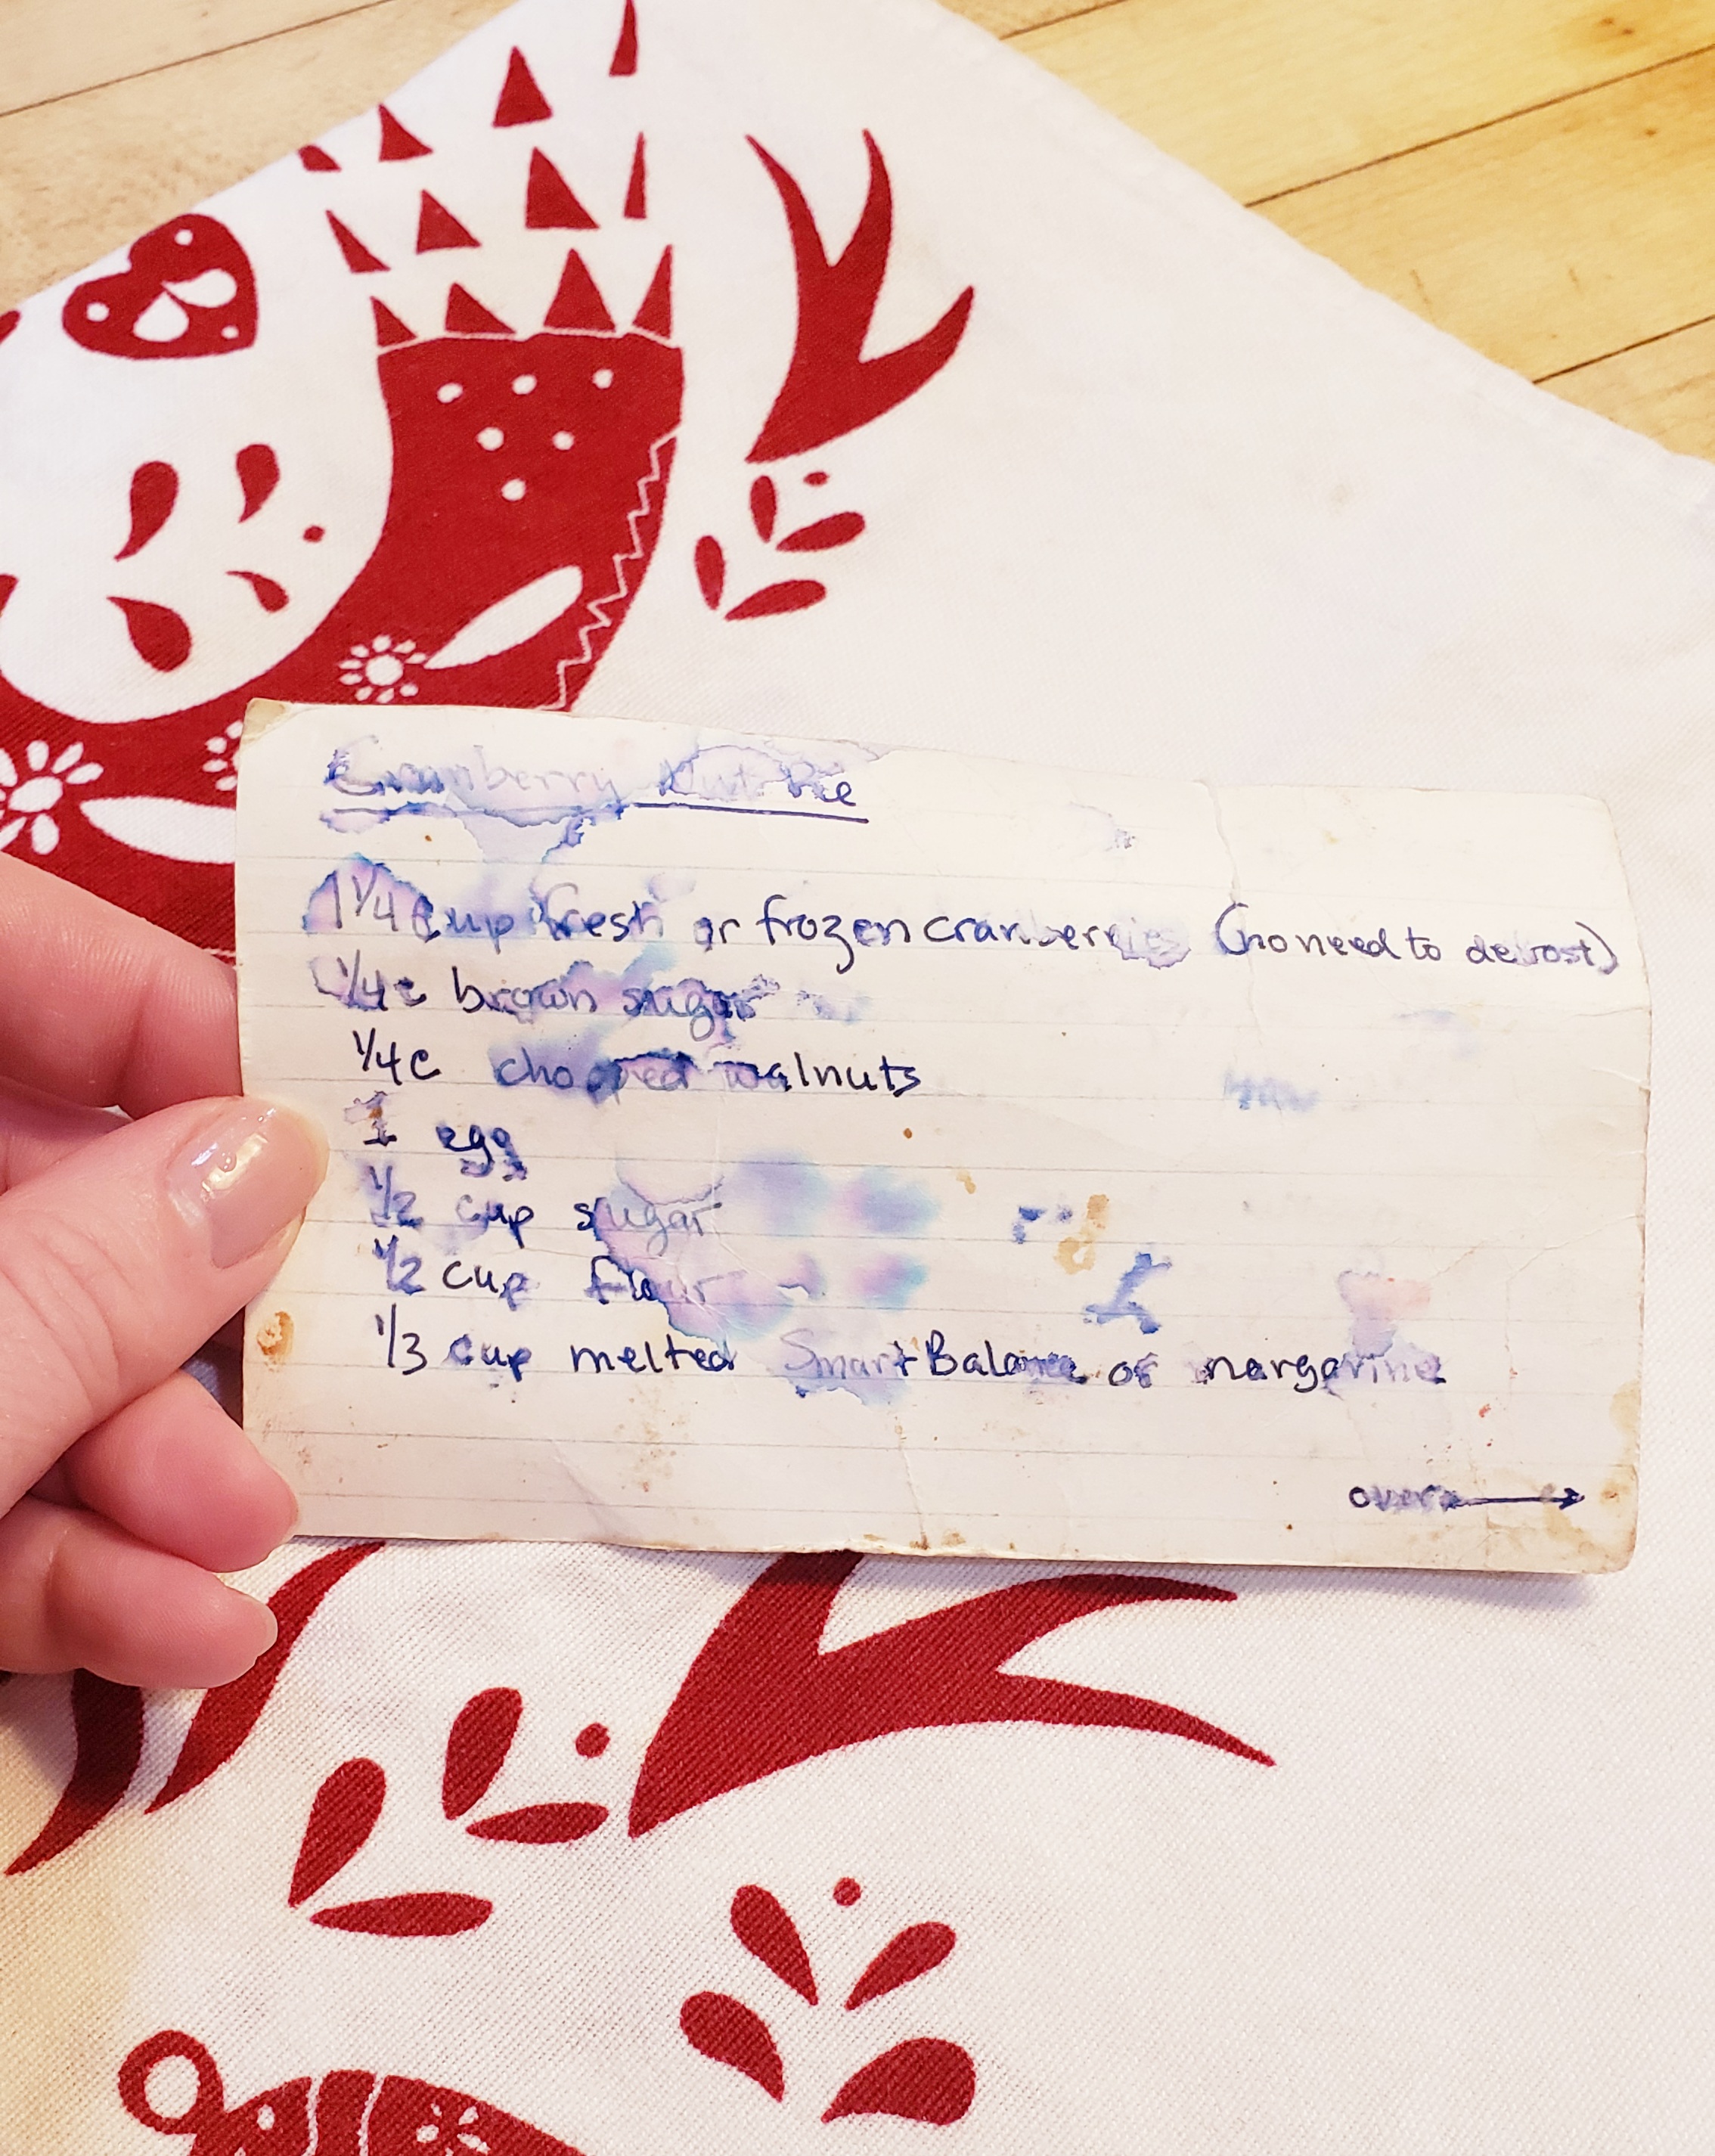 Cranberry Nut Pie
1 1/4 cup fresh or frozen cranberries (no need to defrost)
1/4 c brown sugar
1/4 c chopped walnuts
1 egg
1/2 cup sugar
1/2 cup flour
1/3 cup melted Smart Balance or margarine
over →